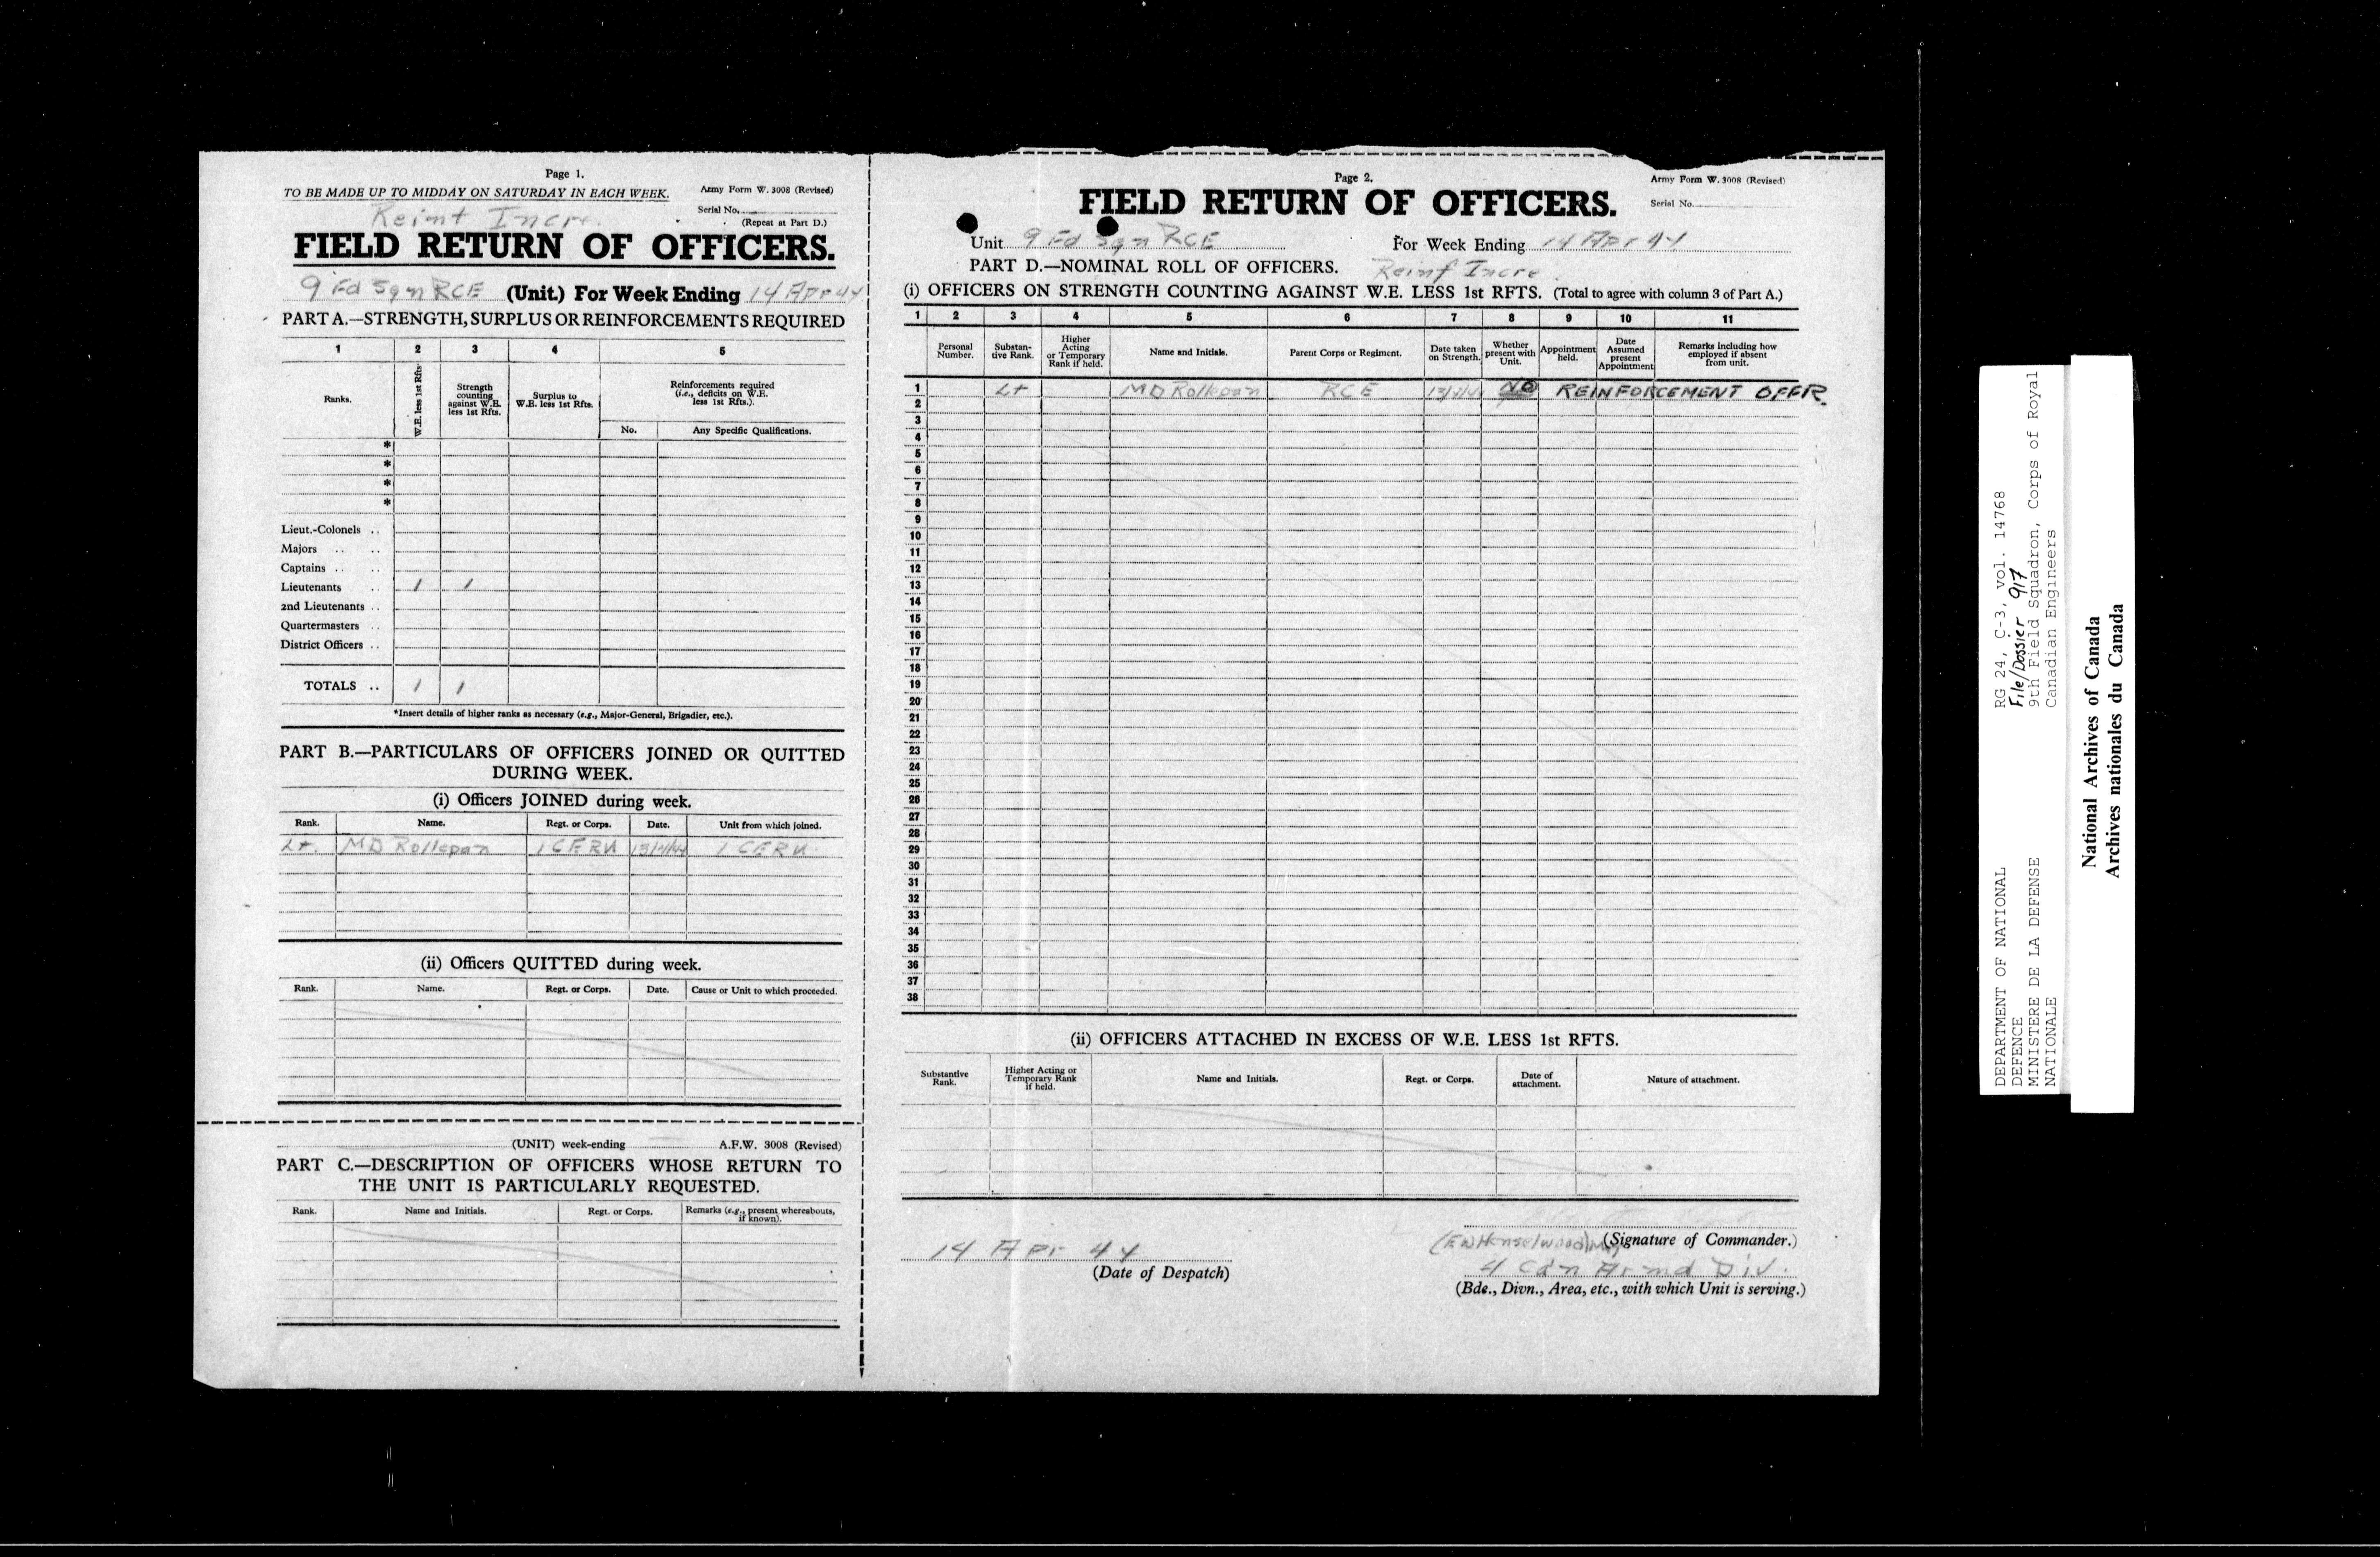 Page 1.
TO BE MADE UP TO MIDDAY ON SATURDAY IN EACH WEEK.
Army Form W. 3008 (Revised)
Serial No.
(Repeat at Part D.)
Reinf Incr.
FIELD RETURN OF OFFICERS.
9 Fd Sqn RCE (Unit.) For Week Ending 14 Apr 44
PART A.—STRENGTH, SURPLUS OR REINFORCEMENTS REQUIRED
1 2 3 4 5
Ranks.
W.E. less 1st Rfts.
Strength counting against W.E. less 1st Rfts.
Surplus to W.E. less 1st Rfts.
Reinforcements required (i.e., deficits on W.E. less 1st Rfts.).
No. Any Specific Qualifications.
*
*
*
*
Lieut.-Colonels ..
Majors .. ..
Captains .. ..
Lieutenants .. 1 1
2nd Lieutenants ..
Quartermasters ..
District Officers ..
TOTALS .. 1 1
*Insert details of higher ranks as necessary (e.g., Major-General, Brigadier, etc.).
PART B.—PARTICULARS OF OFFICERS JOINED OR QUITTED
DURING WEEK.
(i) Officers JOINED during week.
Rank. Name. Regt. or Corps. Date. Unit from which joined.
Lt. MD Rollepan 1 CERU 13/4/44 1 CERU
(ii) Officers QUITTED during week.
Rank. Name. Regt. or Corps. Date. Cause or Unit to which proceeded.
(UNIT) week-ending A.F.W. 3008 (Revised)
PART C.—DESCRIPTION OF OFFICERS WHOSE RETURN TO
THE UNIT IS PARTICULARLY REQUESTED.
Rank. Name and Initials. Regt. or Corps. Remarks (e.g., present whereabouts, if known).
Page 2.
Army Form W. 3008 (Revised)
Serial No.
FIELD RETURN OF OFFICERS.
Unit 9 Fd Sqn RCE For Week Ending 14 Apr 44
PART D.—NOMINAL ROLL OF OFFICERS. Reinf Incre.
(i) OFFICERS ON STRENGTH COUNTING AGAINST W.E. LESS 1st RFTS. (Total to agree with column 3 of Part A.)
1 2 3 4 5 6 7 8 9 10 11
Personal Number.
Substantive Rank.
Higher Acting or Temporary Rank if held.
Name and Initials.
Parent Corps or Regiment.
Date taken on Strength.
Whether present with Unit.
Appointment held.
Date Assumed present Appointment
Remarks including how employed if absent from unit.
1 Lt MD Rollepan RCE 13/4/44 NO REINFORCEMENT OFFR.
2
3
4
5
6
7
8
9
10
11
12
13
14
15
16
17
18
19
20
21
22
23
24
25
26
27
28
29
30
31
32
33
34
35
36
37
38
(ii) OFFICERS ATTACHED IN EXCESS OF W.E. LESS 1st RFTS.
Substantive Rank.
Higher Acting or Temporary Rank if held.
Name and Initials.
Regt. or Corps.
Date of attachment.
Nature of attachment.
14 Apr 44
(Date of Despatch)
(EW Henselwood) Maj (Signature of Commander.)
4 Cdn Armd Div.
(Bde., Divn., Area, etc., with which Unit is serving.)
DEPARTMENT OF NATIONAL
DEFENCE
MINISTERE DE LA DEFENSE
NATIONALE
RG 24, C-3, vol. 14768
File/Dossier 917
9th Field Squadron, Corps of Royal
Canadian Engineers
National Archives of Canada
Archives nationales du Canada